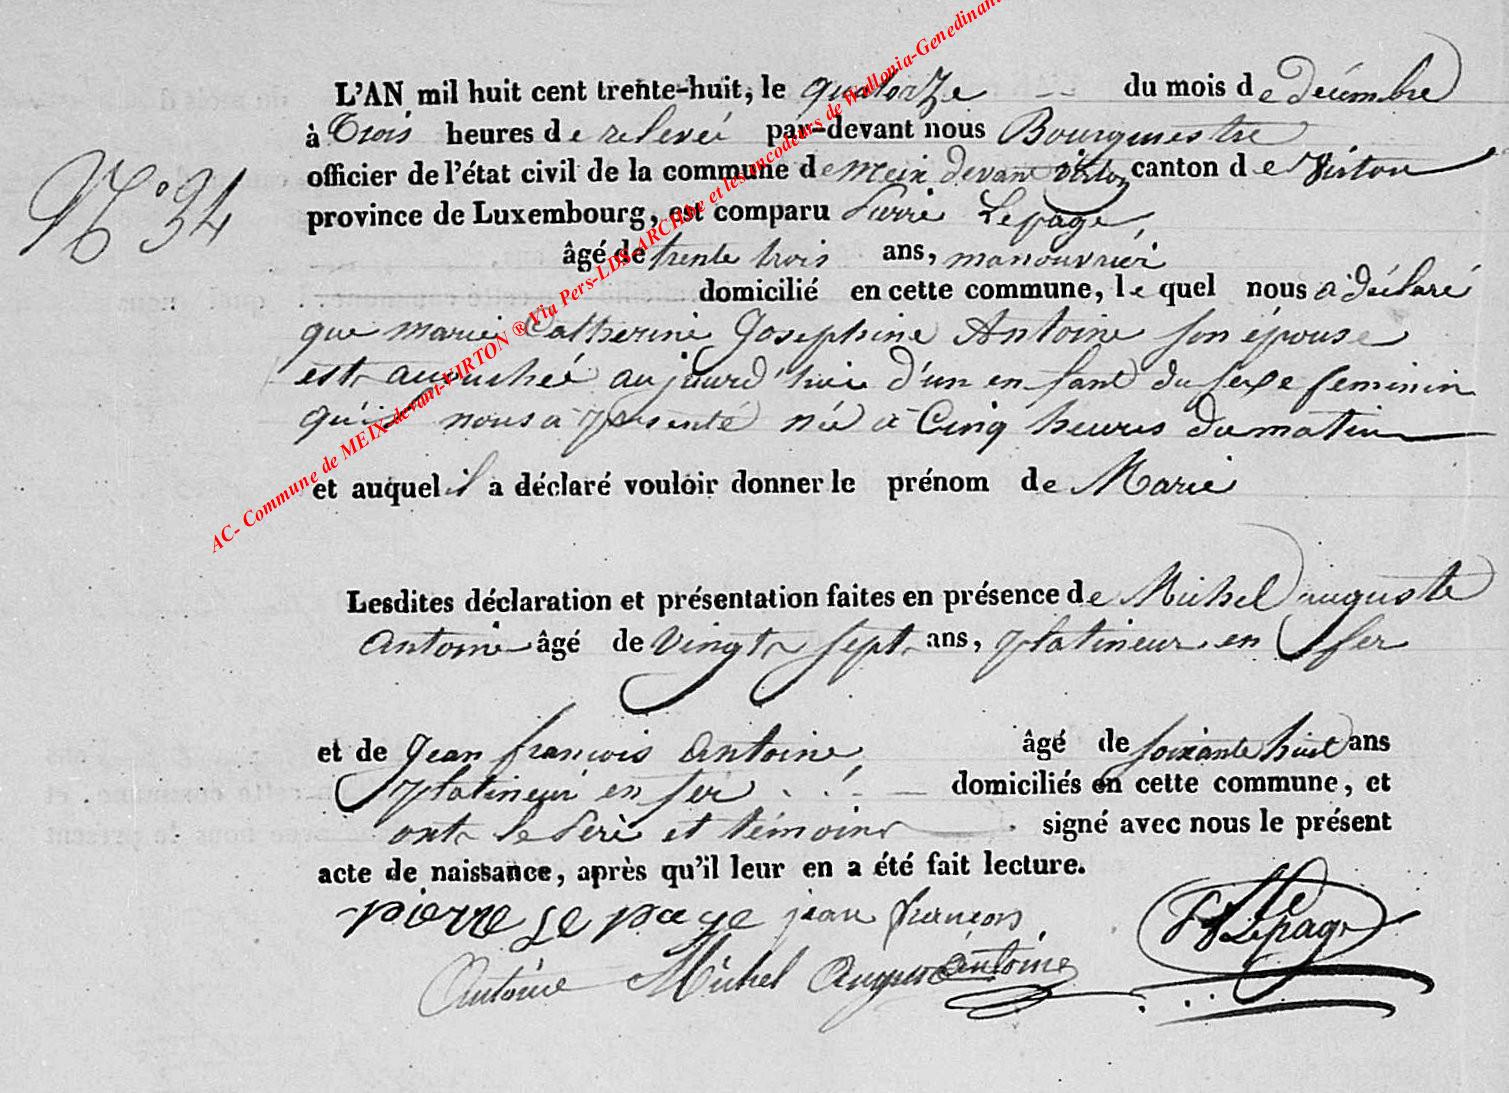 N° 34
L'AN mil huit cent trente-huit, le quatorze -- du mois de décembre
à Trois heures de relevée par-devant nous Bourgmestre
officier de l'état civil de la commune de Meix devant Virton canton de Virton
province de Luxembourg, est comparu Pierre Lepage,
âgé de trente trois ans, manouvrier
domicilié en cette commune, le quel nous a déclaré
que Marie Catherine Josephine Antoine son épouse
est accouchée aujourd'hui d'un enfant du sexe feminin
qu'il nous a présenté née à Cinq heures du matin
et auquel il a déclaré vouloir donner le prénom de Marie
Lesdites déclaration et présentation faites en présence de Michel auguste
antoine âgé de vingt sept ans, platineur en fer
et de Jean françois antoine, âgé de soixante huit ans
platineur en fer domiciliés en cette commune, et
ont le Père et témoins signé avec nous le présent
acte de naissance, après qu'il leur en a été fait lecture.
pierre le page jean françois
Antoine Michel August antoine
Lepage
AC- Commune de MEIX-devant-VIRTON ® Via Pers-LDS-ARCHbe et les encodeurs de Wallonia-Genedinant